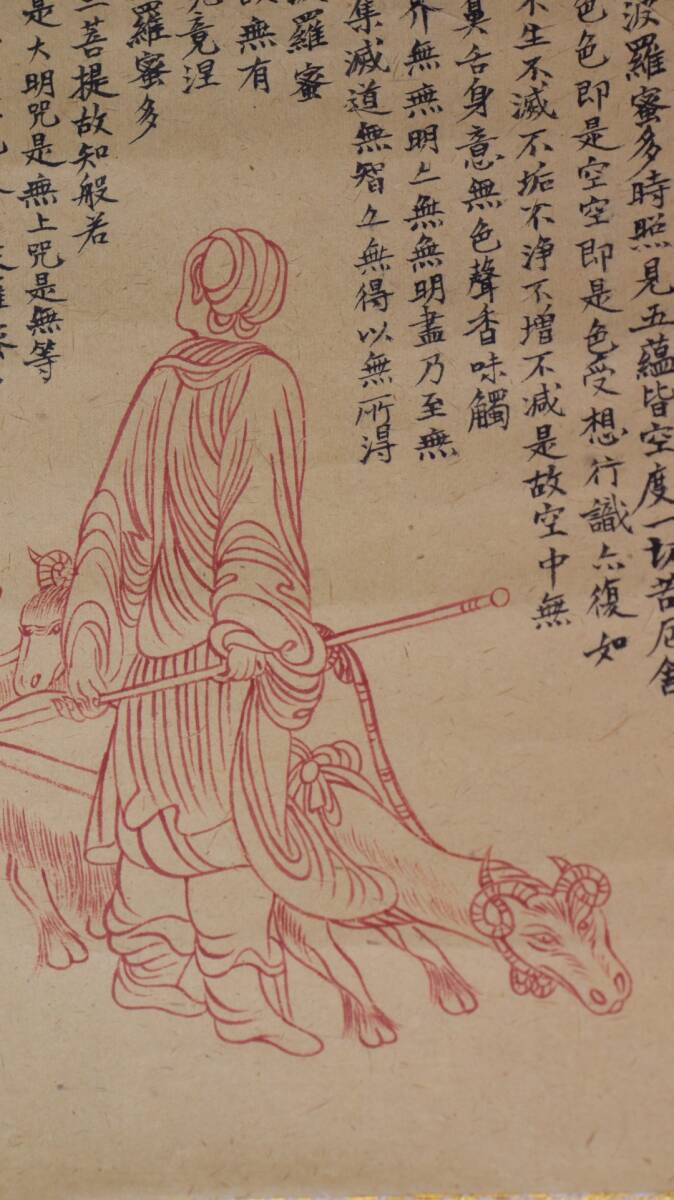 波羅蜜多時照見五蘊皆空度一切苦厄舍
色色即是空空即是色受想行識亦復如
不生不滅不垢不淨不增不減是故空中無
鼻舌身意無色聲香味觸
界無無明亠無無明盡乃至無
集滅道無智亠無得以無所得
羅蜜
故無有
究竟涅
羅蜜多
三菩提故知般若
是大明咒是無上咒是無等